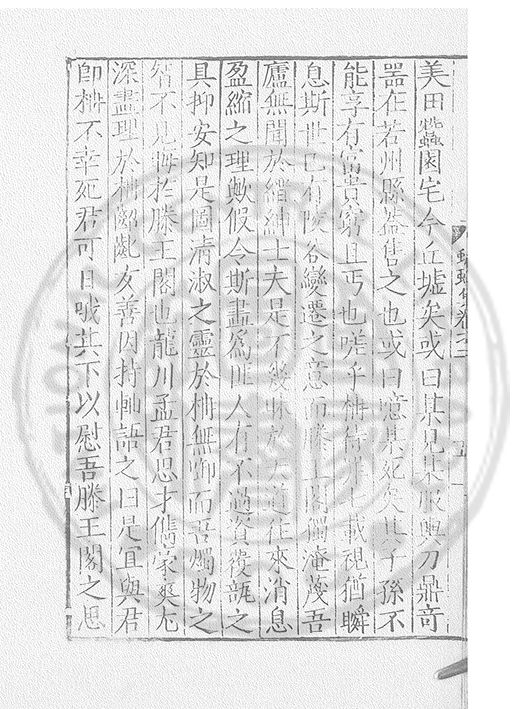 美田蠶園宅今丘墟矣或曰某見某服與刀鼎奇
器在若州縣盖售之也或曰噫某死矣其子孫不
能享有富貴窮且丐也嗟乎柟待罪十載視猶瞬
息斯世已有陵谷變遷之意而滕王閣獨淹蔑吾
廬無聞於縉紳士夫是不幾昧於大道往來消息
盈縮之理歟假令斯畫爲匪人有不過資覆瓿之
具抑安知是圖清淑之靈於柟無啣而吾燭物之
智不見侮於滕王閣也龍川孟君思才儁家爽尤
深畫理於柟齠齓友善因持軸語之曰是宜與君
卽柟不幸死君可日哦其下以慰吾滕王閣之思
蠛蠓集卷之二
五